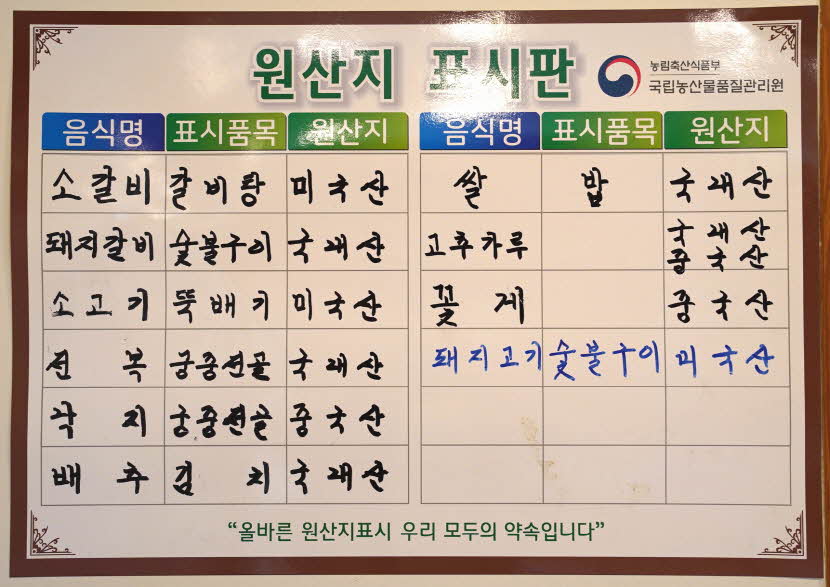 원산지 표시판
농림축산식품부
국립농산물품질관리원
음식명 표시품목 원산지
소갈비 갈비탕 미국산
돼지갈비 숯불구이 국내산
소고기 뚝배기 미국산
전복 궁중전골 국내산
낙지 궁중전골 중국산
배추 김치 국내산
음식명 표시품목 원산지
쌀 밥 국내산
고추가루 국내산
중국산
꽃게 중국산
돼지고기 숯불구이 미국산
“올바른 원산지표시 우리 모두의 약속입니다”